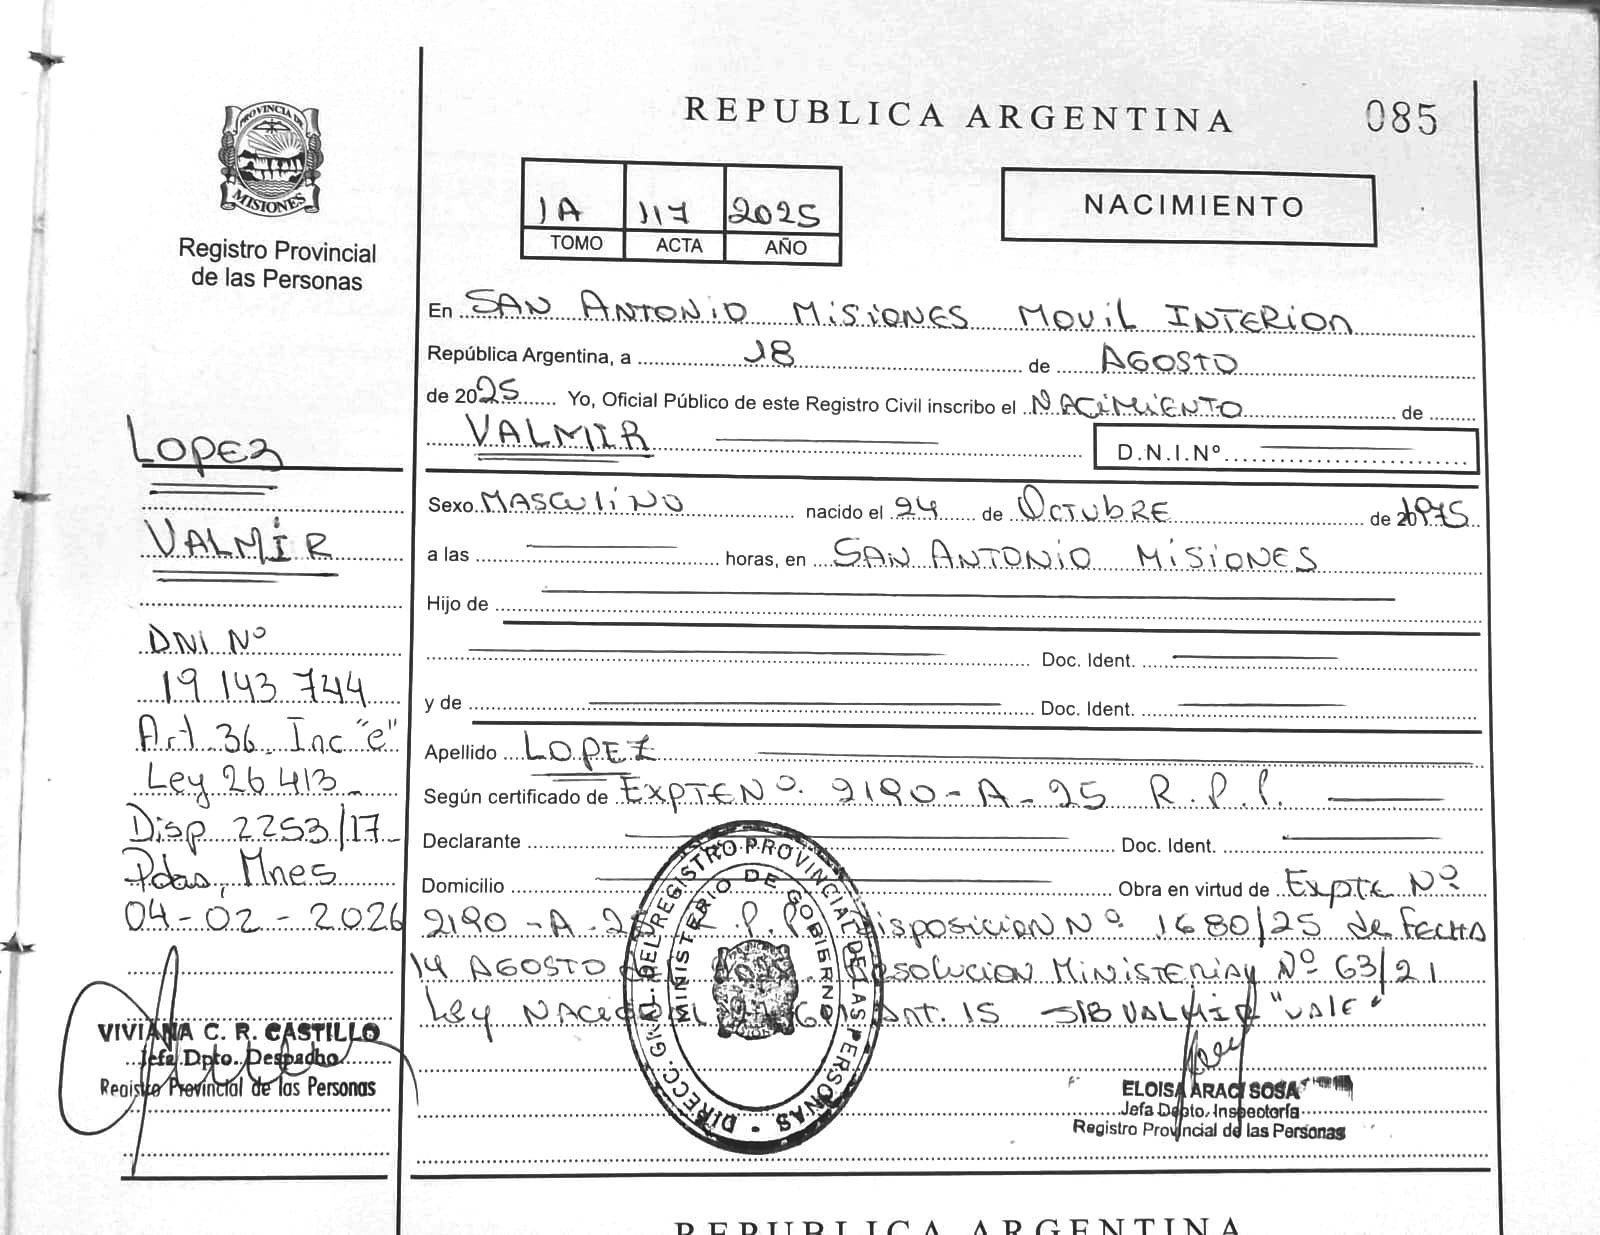 REPUBLICA ARGENTINA
085
PROVINCIA DE
MISIONES
Registro Provincial
de las Personas
1A 117 2025
TOMO ACTA AÑO
NACIMIENTO
En SAN ANTONIO MISIONES MOVIL INTERIOR
República Argentina, a 18 de AGOSTO
de 2025 Yo, Oficial Público de este Registro Civil inscribo el NACIMIENTO de
VALMIR
D.N.I.Nº
Sexo MASCULINO nacido el 24 de OCTUBRE de 1975
a las horas, en SAN ANTONIO MISIONES
Hijo de
Doc. Ident.
y de Doc. Ident.
Apellido LOPEZ
Según certificado de EXPTE Nº. 2190-A-25 R.P.P.
Declarante Doc. Ident.
Domicilio Obra en virtud de Expte Nº
2190-A-2 R.P.P. Disposicion Nº 1680/25 de FECHA
14 AGOSTO Resolucion MINISTERIAL Nº 63/21
Ley Art. 15 S/B VALMIR "VALE"
LOPEZ
VALMIR
DNI Nº
19 143 744
Art 36 Inc "e"
Ley 26 413
Disp 2253/17
Pdas, Mnes
04-02-2026
VIVIANA C. R. CASTILLO
Jefa Dpto. Despacho
Registro Provincial de las Personas
DIRECC. GRAL. DEL REGISTRO PROVINCIAL DE LAS PERSONAS
MINISTERIO DE GOBIERNO
ELOISA ARACI SOSA
Jefa Depto. Inspectoría
Registro Provincial de las Personas
REPUBLICA ARGENTINA